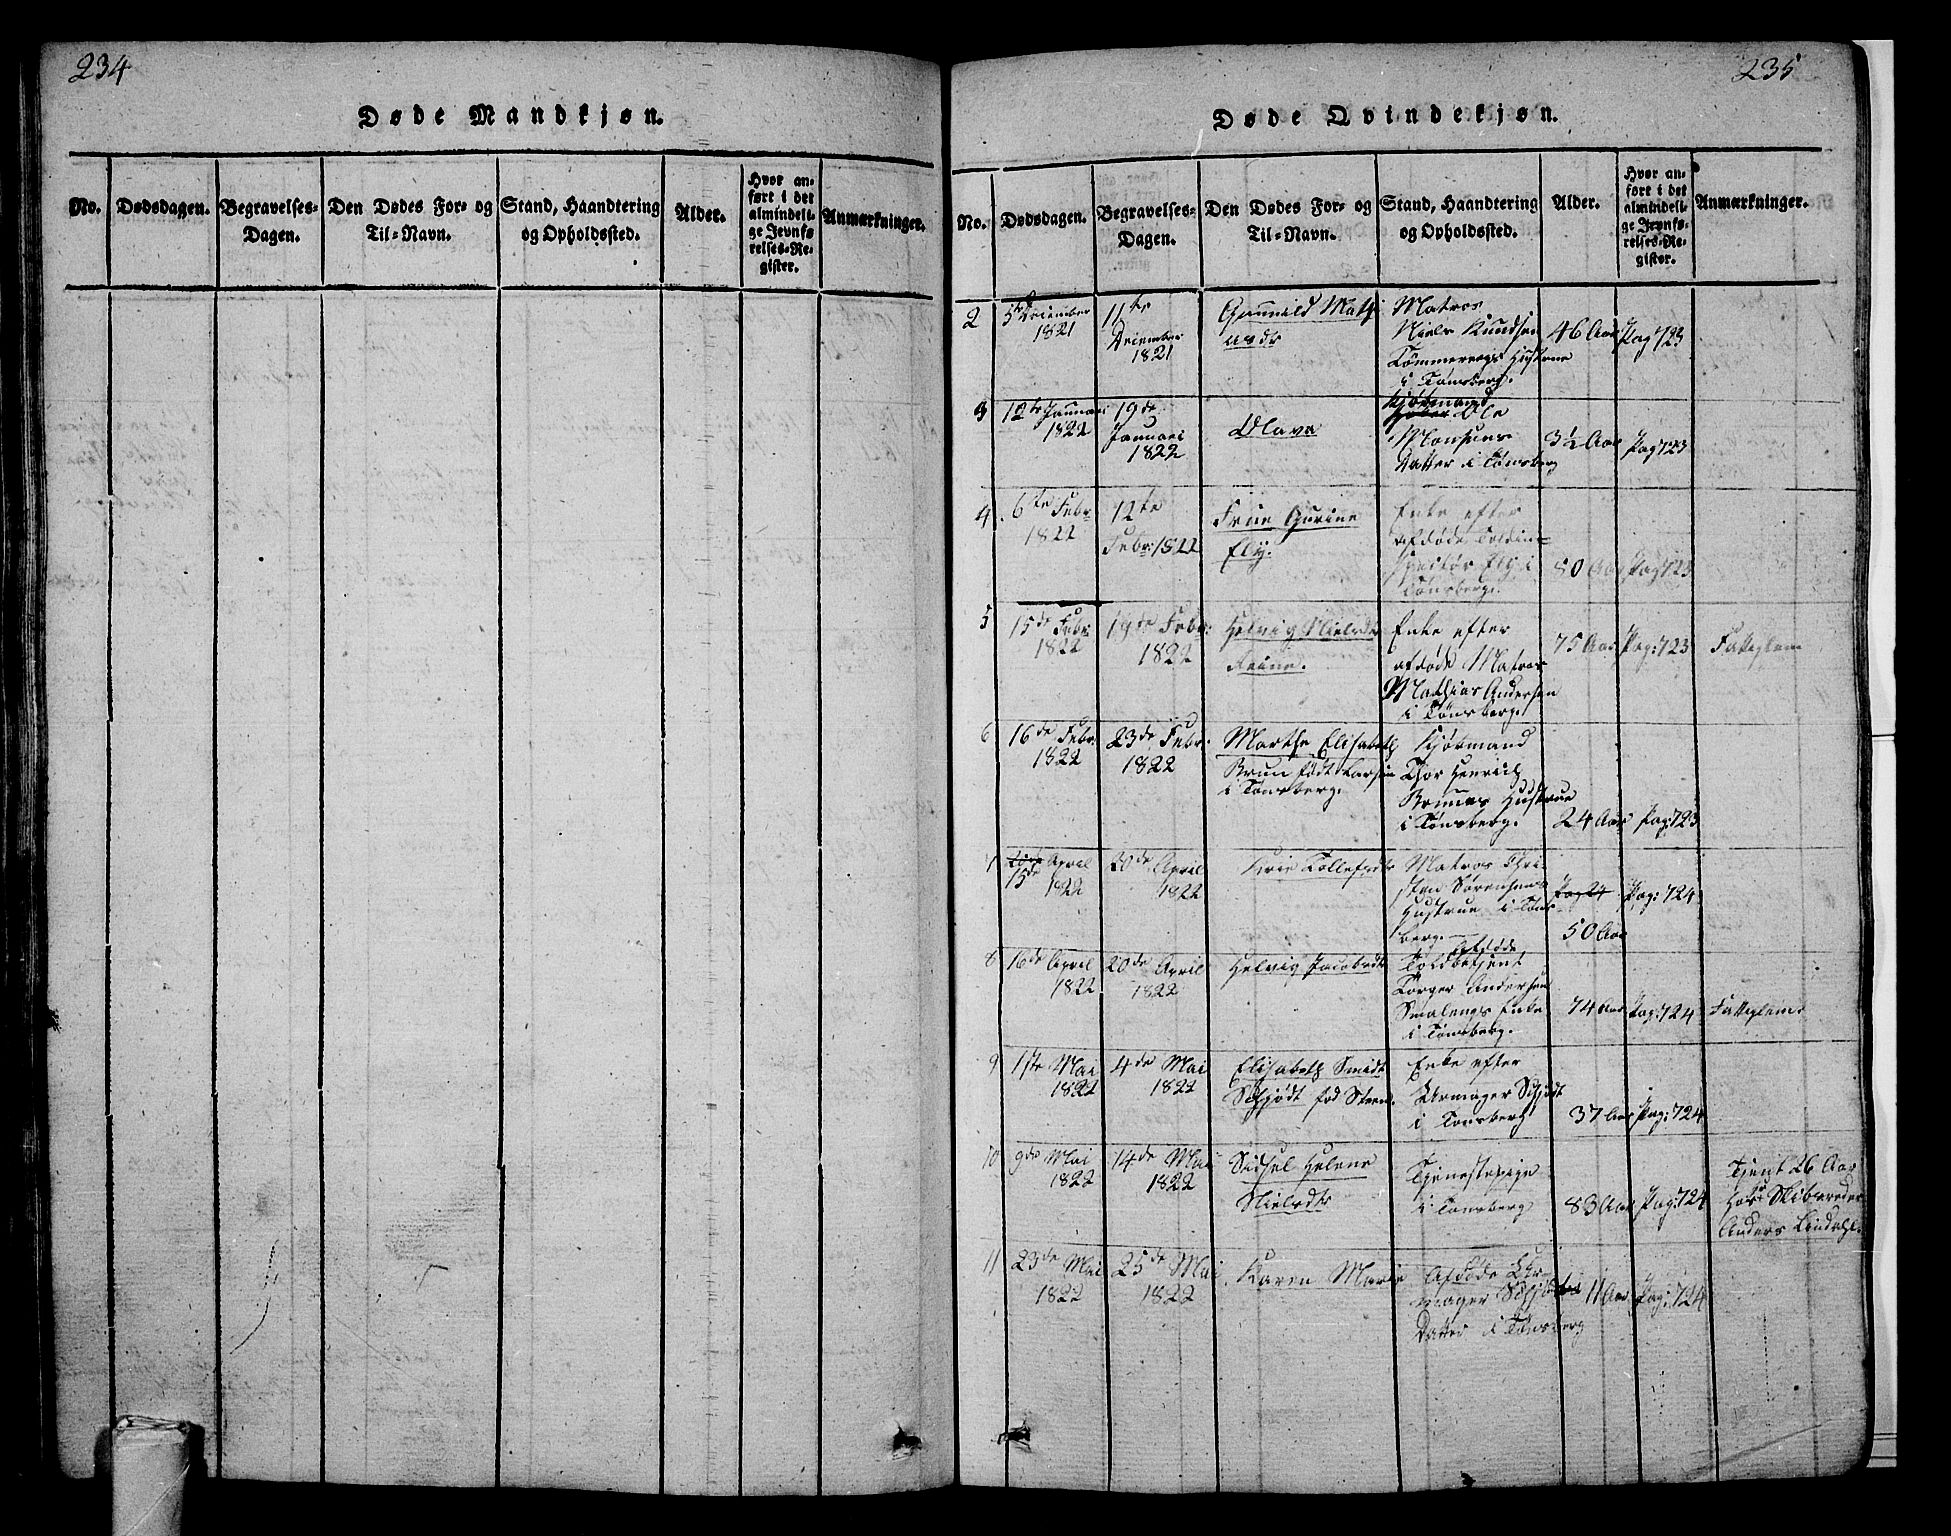 234
Døde Mandkjøn.
No.
Dødsdagen.
Begravelses-
Dagen.
Den Dødes For- og
Til-Navn.
Stand, Haandtering
og Opholdssted.
Alder.
Hvor an-
ført i det
almindeli-
ge Jevnfø-
relses-Re-
gister.
Anmærkninger.
235
Døde Qvindekjøn.
No.
Dødsdagen.
Begravelses-
Dagen.
Den Dødes For- og
Til-Navn.
Stand, Haandtering
og Opholdssted.
Alder.
Hvor an-
ført i det
almindeli-
ge Jevnfø-
relses-Re-
gister.
Anmærkninger.
2
5te December
1821
11te
December
1821
Gunnild Mathi
asdr
Matros
Niels Knudsen
Hustrue
i Tønsberg.
46 Aar
Pag 723
3
12te Januari
1822
19de
Januari
1822
Olava
Kjøbmand
Ole
Monsens
Datter i Tønsberg
3½ Aar
Pag 723
4
6te Febr
1822
12te
Febr: 1822
Frue Gurine
Ely.
Enke efter
afdøde Toldin=
spectør Ely i
Tønsberg.
80 Aar
Pag 723
5
15de Febr:
1822
19de Febr:
1822
Helvig Nielsdr
Enke efter
afdøde Matros
Mathias Andersen
i Tønsberg.
75 Aar
Pag: 723
Fatteglem
6
16de Febr:
1822
23de Febr:
1822
Marthe Elisabeth
Brun født Larsen
i Tønsberg.
Kjøbmand
Thor Henrich
Bruuns Hustrue
i Tønsberg.
24 Aar
Pag: 723
7
15de April
1822
20de April
1822
Marie Tollefsdr
Matros Chri
sten Sørensens
Hustrue i Tøns
berg.
Pag 24
50 Aar
Pag: 724
8
16de April
1822
20de April
1822
Helvig Jacobsdr
Afdøde
Toldbetjent
Torger Andersen
Smalengs Enke
i Tønsberg.
74 Aar
Pag: 724
Fatteglem
9
1ste Mai
1822
4de Mai
1822
Elisabeth Smidt
Schjødt fød Steen.
Enke efter
Urmager Schjødt
i Tønsberg
37 Aar
Pag: 724
10
9de Mai
1822
14de Mai
1822
Sidsel Helene
Nielsdr
Tjenestepige
i Tønsberg
83 Aar
Pag: 724
Tjent 26 Aar
Hos Skibsreder
Anders Lindahl.
11
23de Mai
1822
25de Mai
1822
Karen Marie
Afdøde Ur-
mager Schjødts
Datter i Tønsberg
11 Aar
Pag: 724